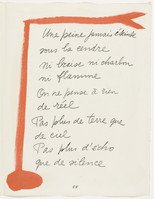 Une peine jamais éteinte
sous la cendre
ni braise ni charbon
ni flamme
On ne pense à rien
de réel
Pas plus de terre que
de ciel
Pas plus d'écho
que de silence